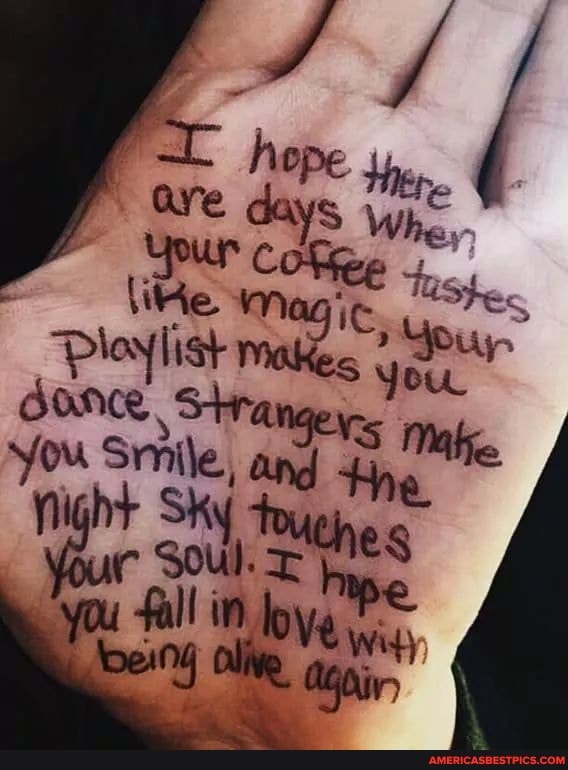 I hope there
are days when
your coffee tastes
like magic, your
playlist makes you
dance, strangers make
you smile, and the
night sky touches
your soul. I hope
you fall in love with
being alive again
AMERICASBESTPICS.COM